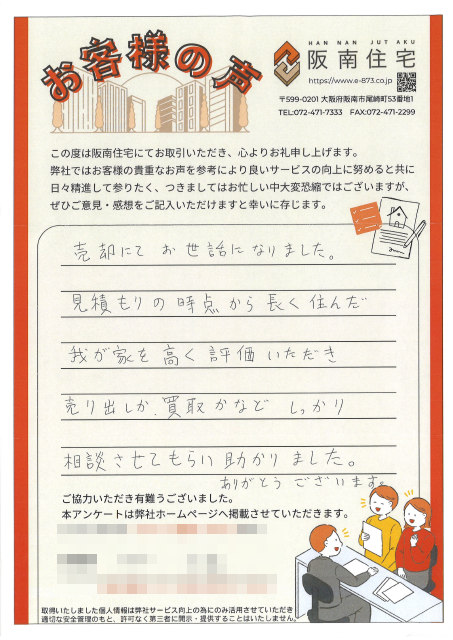 お客様の声
HAN NAN JUT AKU
阪南住宅
https://www.e-873.co.jp
〒599-0201 大阪府阪南市尾崎町53番地1
TEL:072-471-7333 FAX:072-471-2299
この度は阪南住宅にてお取引いただき、心よりお礼申し上げます。
弊社ではお客様の貴重なお声を参考により良いサービスの向上に努めると共に
日々精進して参りたく、つきましてはお忙しい中大変恐縮ではございますが、
ぜひご意見・感想をご記入いただけますと幸いに存じます。
売却にて お世話になりました。
見積もりの時点から長く住んだ
我が家を高く評価いただき
売り出しか、買取かなど しっかり
相談させてもらい助かりました。
ありがとうございます。
ご協力いただき有難うございました。
本アンケートは弊社ホームページへ掲載させていただきます。
取得いたしました個人情報は弊社サービス向上の為にのみ活用させていただき
適切な安全管理のもと、許可なく第三者に開示・提供することはいたしません。